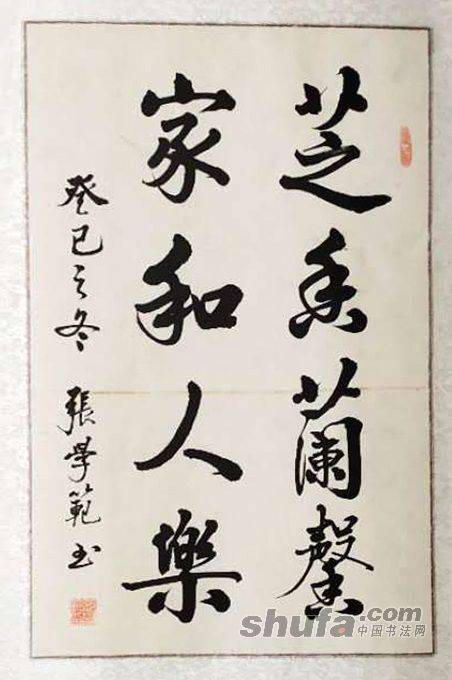 芝香蘭馨
家和人樂
癸巳之冬 張學範书
shufa.com
中国书法网